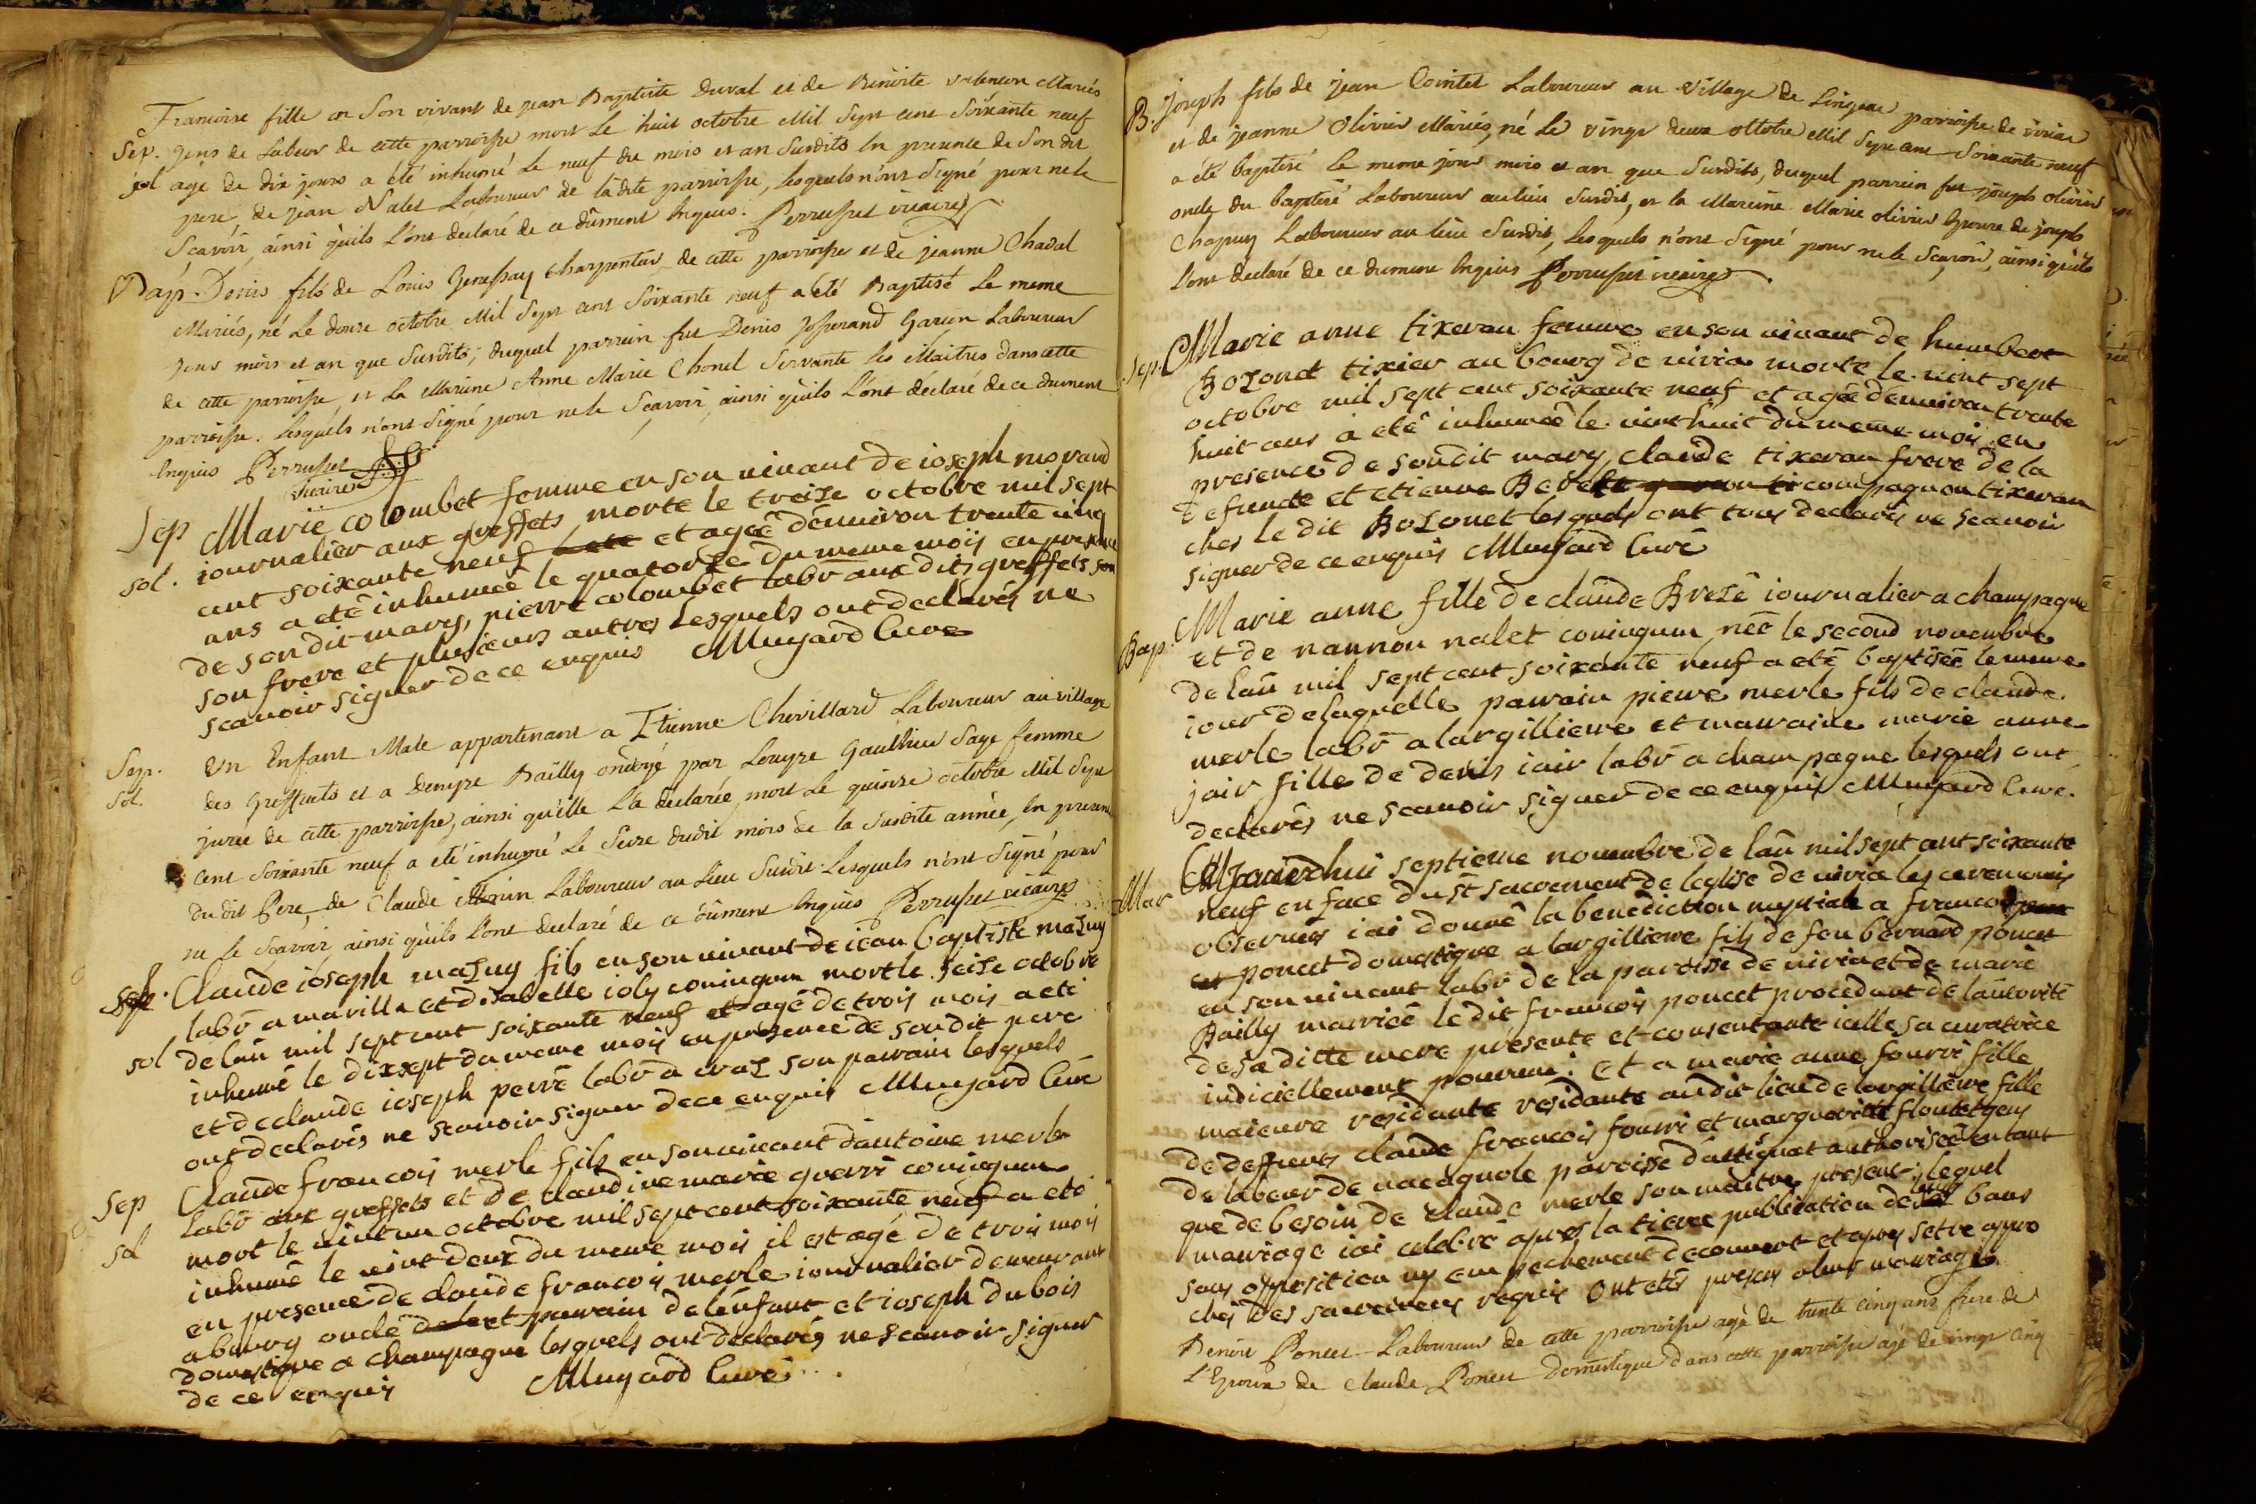 Francoise fille en son vivant de jean Baptiste Duval et de Benoite Mariés
Sep. gens de Labeur de cette parroisse mort Le huit octobre Mil Sept cens Soixante neuf
agé de dix jours a été inhumé Le neuf du mois et an Susdits En presence de Son dit
pere, de jean Nalet Laboureur de ladite parroisse, Lesquels n'ont Signé pour ne le
Scavoir, ainsi qu'ils L'ont declaré de ce dûment Enquis. Perrusset vicaire
Bap. Denis fils de Louis charpentier de cette parroisse et de jeanne Chadal
Mariés, né Le douze octobre Mil Sept cens Soixante neuf a été Baptisé Le meme
jour mois et an que Susdits, duquel parrein fut Denis Josserand Garcon Laboureur
de cette parroisse, et La Mareine Anne Marie Chonel Servante Les Maitres dans cette
parroisse. Lesquels n'ont Signé pour ne le Scavoir, ainsi qu'ils L'ont declaré de ce dument
Enquis Perrusset
vicaire
Sep Marie colombet femme en son vivant de ioseph morand
sol. iournalier aux greffets, morte le treize octobre mil sept
cent soixante neuf et agée d'environ trente cinq
ans a eté inhumée le quatorze du meme mois en presence
de son dit mary, pierre colombet labr aux dits greffets son
son frere et plusieurs autres Lesquels ont declarés ne
scavoir signer de ce enquis Mugard Curé
Sep. Un Enfant Male appartenant a Etienne Chevillard Laboureur au village
Sol. des Greffets et a Bailly ondoyé par Gauthier Sage femme
jurée de cette parroisse, ainsi qu'elle L'a declarée, mort Le quinze octobre Mil Sept
cens Soixante neuf a été inhumé Le Seize dudit mois de la Susdite année, En presence
du dit Pere, de Claude Morin Laboureur au Lieu Susdit Lesquels n'ont Signé pour
ne le Scavoir, ainsi qu'ils L'ont declaré de ce dûment Enquis Perrusset vicaire
Sep. Claude ioseph mazuy fils en son vivant de iean baptiste mazuy
labr a marilla et d'isabelle ioly coniugum mort le seize octobre
sol de lan mil sept cent soixante neuf et agé de trois mois a eté
inhumé le dixsept du meme mois en presence de son dit pere
et de claude ioseph perré labr a craz son parrain lesquels
ont declarés ne scavoir signer de ce enquis Mugard Curé
Sep Claude francois merle fils en son vivant d'antoine merle
labr aux greffets et de claudine marie guerri coniugum
sol mort le vint un octobre mil sept cent soixante neuf a eté
inhumé le vint deux du meme mois il est agé de trois mois
en presence de claude francois merle iournalier demeurant
a bourg oncle et parrain de l'enfant et ioseph dubois
domestique a champagne lesquels ont déclarés ne scavoir signer
de ce enquis Mugard Curé
B. Joseph fils de jean Cointet Laboureur au Village de Lingeat parroisse de viriat
et de jeanne Olivier Mariés, né Le vingt deux octobre Mil Sept cens Soixante neuf
a été baptisé le meme jour mois et an que Susdits, duquel parrein fut joseph olivier
oncle du baptisé Laboureur au lieu Susdit, et la Mareine Marie olivier Epouse de joseph
Chapuy Laboureur au lieu Susdit, Lesquels n'ont Signé pour ne le Scavoir, ainsi qu'ils
l'ont declaré de ce dument Enquis Perrusset vicaire
Sep. Marie anne tixeran femme en son vivant de humbert
Bozonet tixier au bourg de viria morte le vint sept
octobre mil sept cent soixante neuf et agée d'environ trente
huit ans a eté inhumée le vint huit du meme mois en
presence de sondit mary, claude tixeran frere de la
defuncte et etienne compagnon tixeran
ches le dit Bozonet lesquels ont tous declarés ne scavoir
signer de ce enquis Mugard Curé
Bap. Marie anne fille de claude Brezé iournalier a champagne
et de nannon nalet coniugum née le second novembre
de lan mil sept cent soixante neuf a eté baptisée le meme
iour de laquelle parrain pierre merle fils de claude
merle labr a largilliere et marraine marie anne
jair fille de denis iair labr a champagne lesquels ont
declarés ne scavoir signer de ce enquis Mugard Curé.
Mar Aujourdhui septieme novembre de lan mil sept cent soixante
neuf en face du st sacrement de leglise de viria les ceremonies
observées iai donné la benediction nuptiale a francois
poncet domestique a largilliere fils de feu bernard poncet
en son vivant labr de la paroisse de viria et de marie
Bailly mariée le dit francois poncet procedant de lautorité
de sa ditte mere présente et consentante icelle sa curatrice
iudiciellement pourvue. Et a marie anne fourri fille
maieure residante residante audit lieu de largilliere fille
de deffunts claude francois fourri et marguerite floutet gens
de labeur de paroisse d'attignat authorisée entant
que de besoin de claude merle son maitre present, lequel
mariage iai celebré apres la tierce publication de bans
sans opposition ny empechement decouvert et apres setre appro
chés des sacremens requis Ont etés presens aleur mariage
Benoit Poncet Laboureur de cette parroisse agé de trente cinq ans frere de
L'Epoux de Claude Poncet Domestique dans cette parroisse agé de vingt cinq